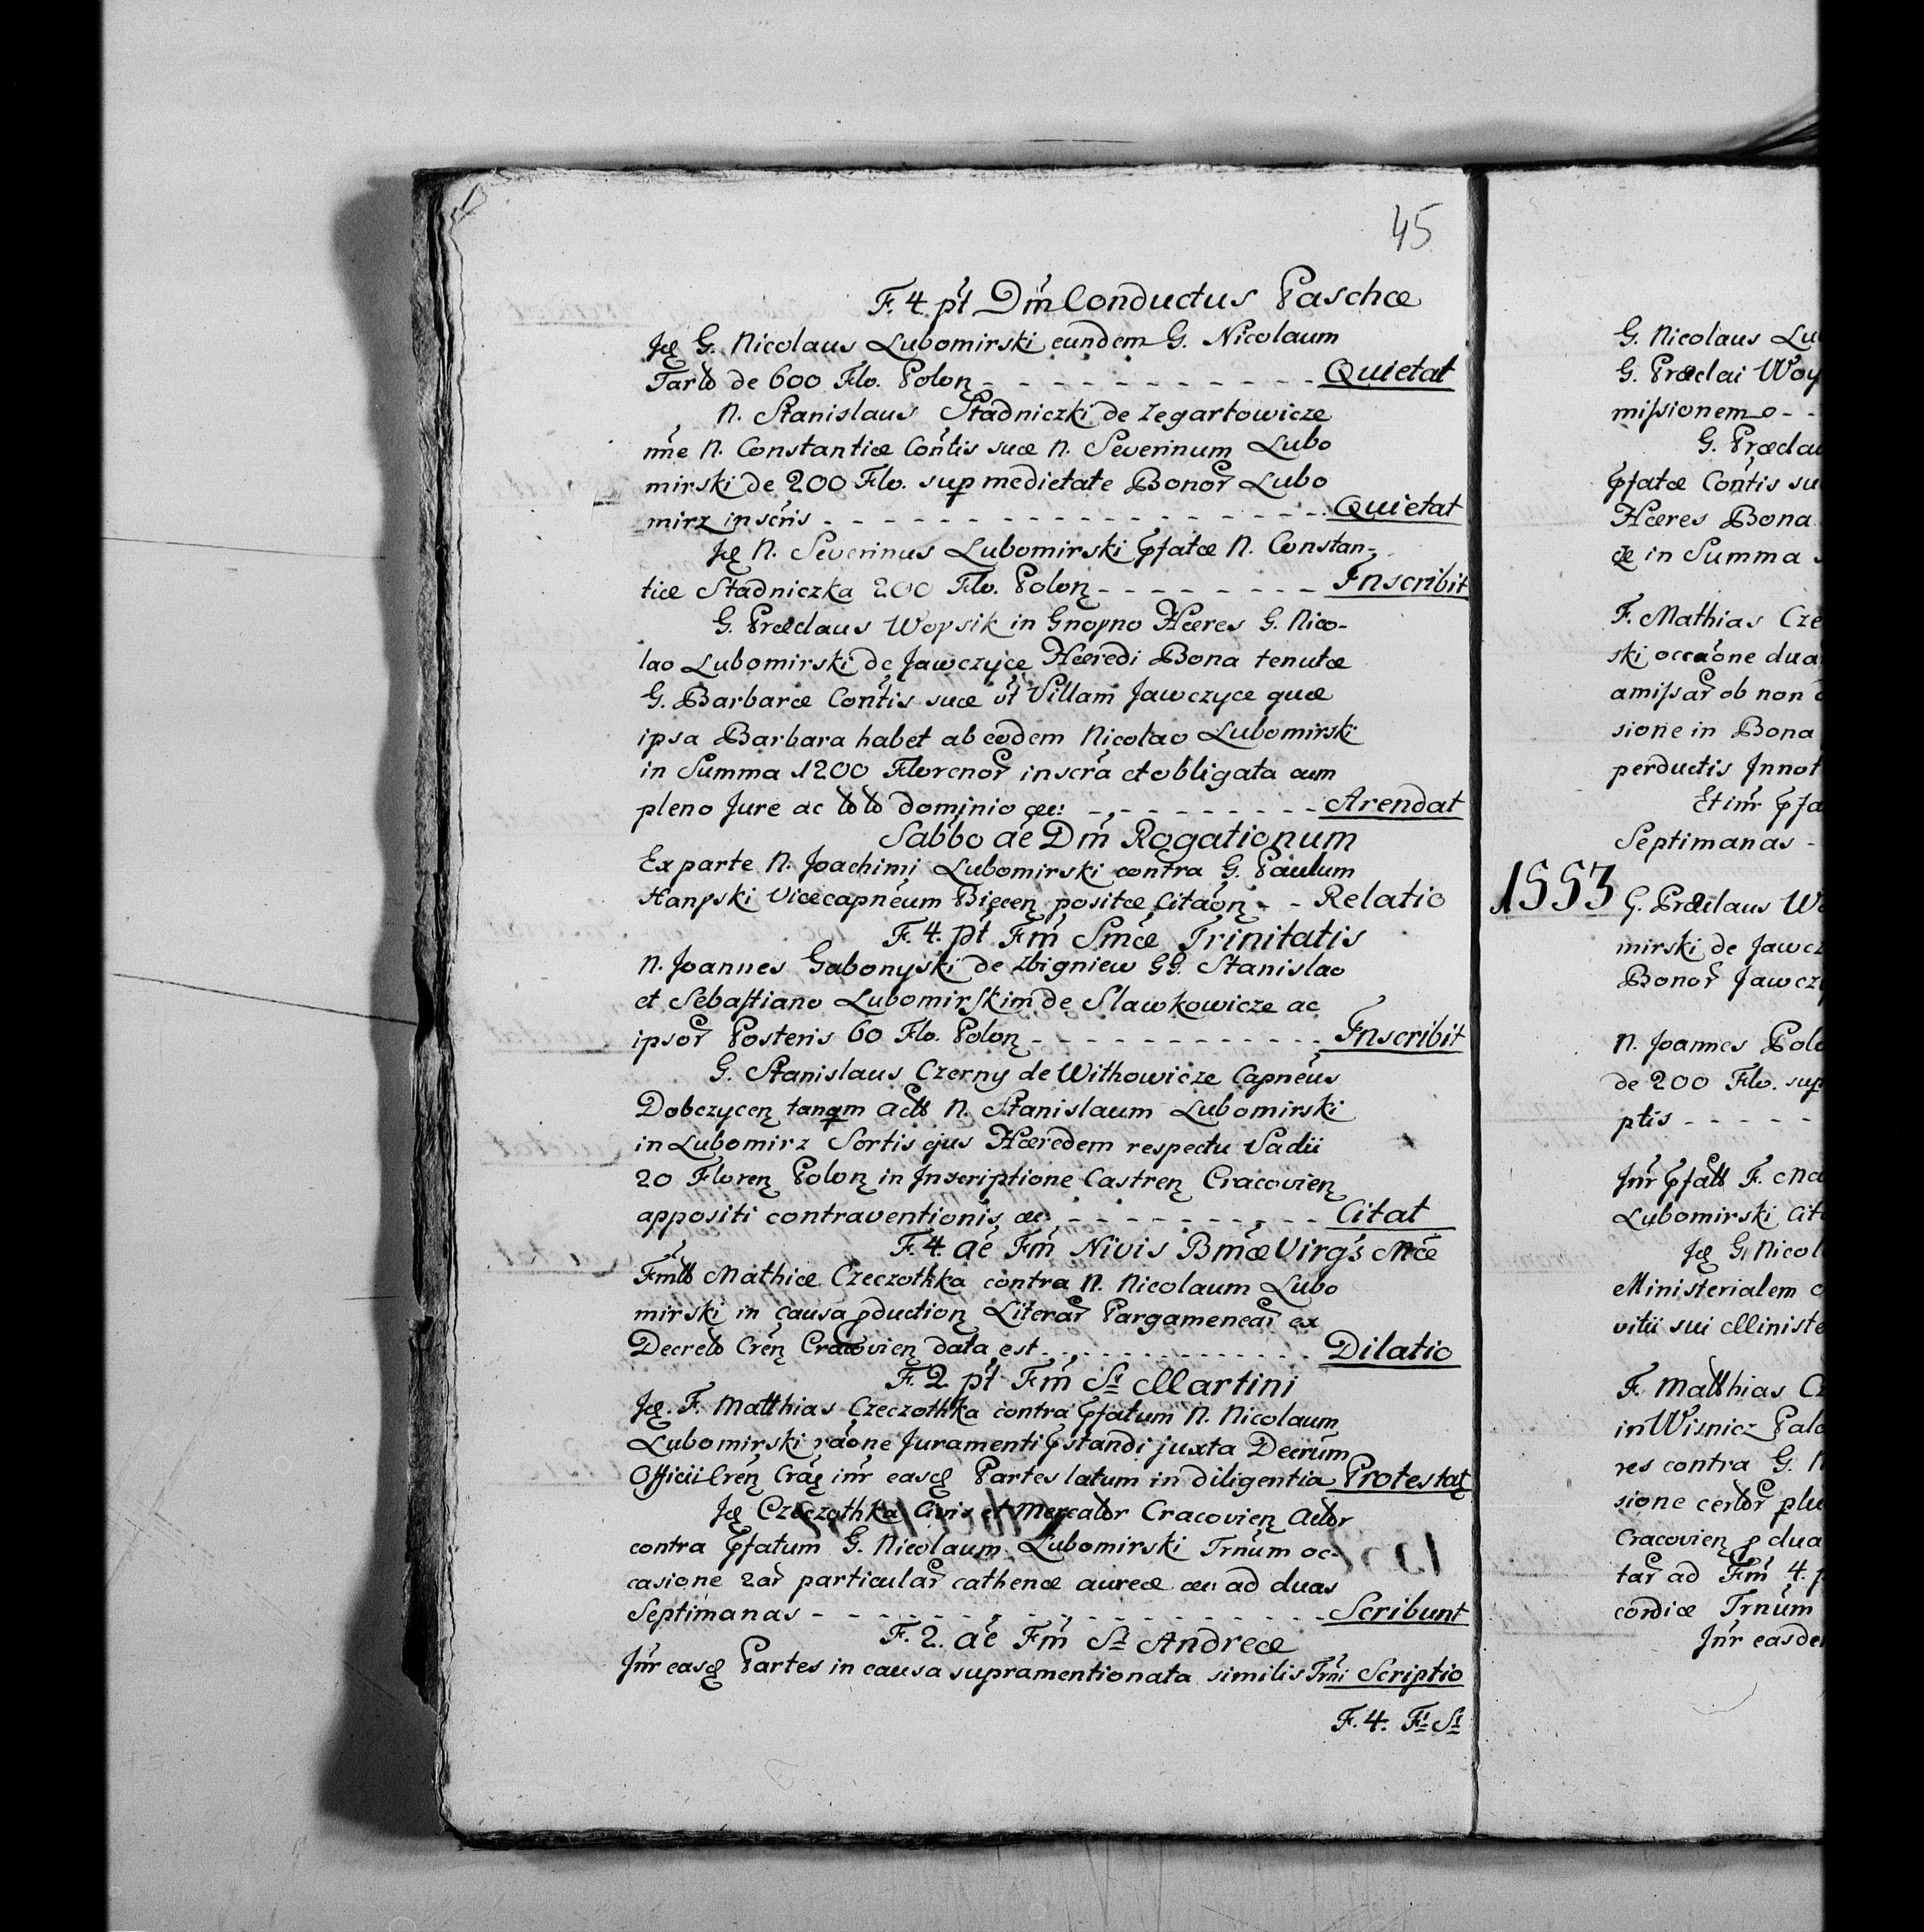 45
F. 4 pt Dm Conductus Paschæ
Jdę G. Nicolaus Lubomirski eundem G. Nicolaum
Tarło de 600 Flo. Polon - - - Quietat
N. Stanislaus Stadniczki de Zegartowicze
nne N. Constantiæ Contis suæ N. Severinum Lubo
mirski de 200 Flo. sup medietate Bonor Lubo
mirz inscris - - - Quietat
Jdę N. Severinus Lubomirski pfatæ N. Constan-
tiæ Stadniczka 200 Flo. Polon - - - Inscribit
G. Præclaus Woysik in Gnoyno Hæres G. Nico-
lao Lubomirski de Jawczyce Hæredi Bona tenutæ
G. Barbaræ Contis suæ ut Villam Jawczyce quæ
ipsa Barbara habet ab eodem Nicolao Lubomirski
in Summa 1200 Florenor inscra et obligata cum
pleno Jure ac toto dominio &c: - - - Arendat
Sabbo ae Dm Rogationum
Ex parte N. Joachimi Lubomirski contra G. Paulum
Hanyski Vicecapneum Biecen positæ Citaon - - Relatio
F. 4. pt Fm Smæ Trinitatis
N. Joannes Gabonyski de Zbigniew GG. Stanislao
et Sebastiano Lubomirskim de Slawkowicze ac
ipsor Posteris 60 Flo. Polon - - - Inscribit
G. Stanislaus Czerny de Withowicze Capneus
Dobczycen tanqm Actt N. Stanislaum Lubomirski
in Lubomirz Sortis ejus Hæredem respectu Vadii
20 Floren Polon in Inscriptione Castren Cracovien
appositi contraventionis &c - - - Citat
F. 4. ae Fm Nivis Bmæ Virgs Mæ
Fmtt Mathiæ Czeczothka contra N. Nicolaum Lubo
mirski in causa pduction Literar Pargamenear ex
Decreto Cren Cracovien data est - - - Dilatio
F. 2 pt Fm St Martini
Jdę. F. Matthias Czeczothka contra pfatum N. Nicolaum
Lubomirski raone Juramenti pstandi juxta Decrum
Officii Cren Crac intr easq Partes latum in diligentia Protestat
Jdę Czeczothka Civis et Mercator Cracovien Actor
contra pfatum G. Nicolaum Lubomirski Trnum oc-
casione 2ar particular cathenæ aureæ &c: ad duas
Septimanas - - - Scribunt
F. 2. ae Fm St Andreæ
Jntr easq Partes in causa supramentionata similis Trni Scriptio
F. 4. Ft St
G. Nicolaus Lu
G. Præclai Woy
missionem - -
G. Præclau
pfatæ Contis su
Hæres Bona
æ in Summa
F. Mathias Cze
ski occaone dua
amissar ob non
sione in Bona
perductis Jnnot
Et intr pfa
Septimanas -
1553 G. Præclaus Wo
mirski de Jawcz
Bonor Jawczy
N. Joannes Pole
de 200 Flo. sup
ptis - - - -
Jntr pfatt F. Ma
Lubomirski Cita
Jdę G. Nicol
Ministerialem
vitii sui Ministe
F. Matthias Cz
in Wisnicz Pala
res contra G. N
sione certor plu
Cracovien p dua
tar ad Fm 4. p
cordiæ Trnum
Jntr easde